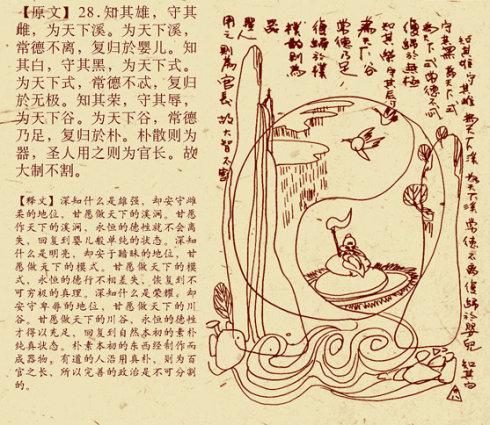 【原文】28. 知其雄，守其
雌，为天下溪。为天下溪，
常德不离，复归於婴儿。知
其白，守其黑，为天下式。
为天下式，常德不忒，复归
於无极。知其荣，守其辱，
为天下谷。为天下谷，常德
乃足，复归於朴。朴散则为
器，圣人用之则为官长。故
大制不割。
【释文】深知什么是雄强，却安守雌
柔的地位，甘愿做天下的溪涧。甘愿
作天下的溪涧，永恒的德性就不会离
失，回复到婴儿般单纯的状态。深知
什么是明亮，却安于暗昧的地位，甘
愿做天下的模式。甘愿做天下的模
式，永恒的德行不相差失，恢复到不
可穷极的真理。深知什么是荣耀，却安
守卑辱的地位，甘愿做天下的川
谷。甘愿做天下的川谷，永恒的德性
才得以充足，回复到自然本初的素朴
纯真状态。朴素本初的东西经制作而
成器物，有道的人沿用真朴，则为百
官之长，所以完善的政治是不可分割
的。
知其雄守其雌 為天下溪 為天下溪 常德不離 復歸於嬰兒 知其白
守其黑 為天下式
為天下式 常德不忒
復歸於無極
知其榮 守其辱
為天下谷
常德乃足
復歸於樸
樸散則為
器
聖人
用之則為官長 故大智不割